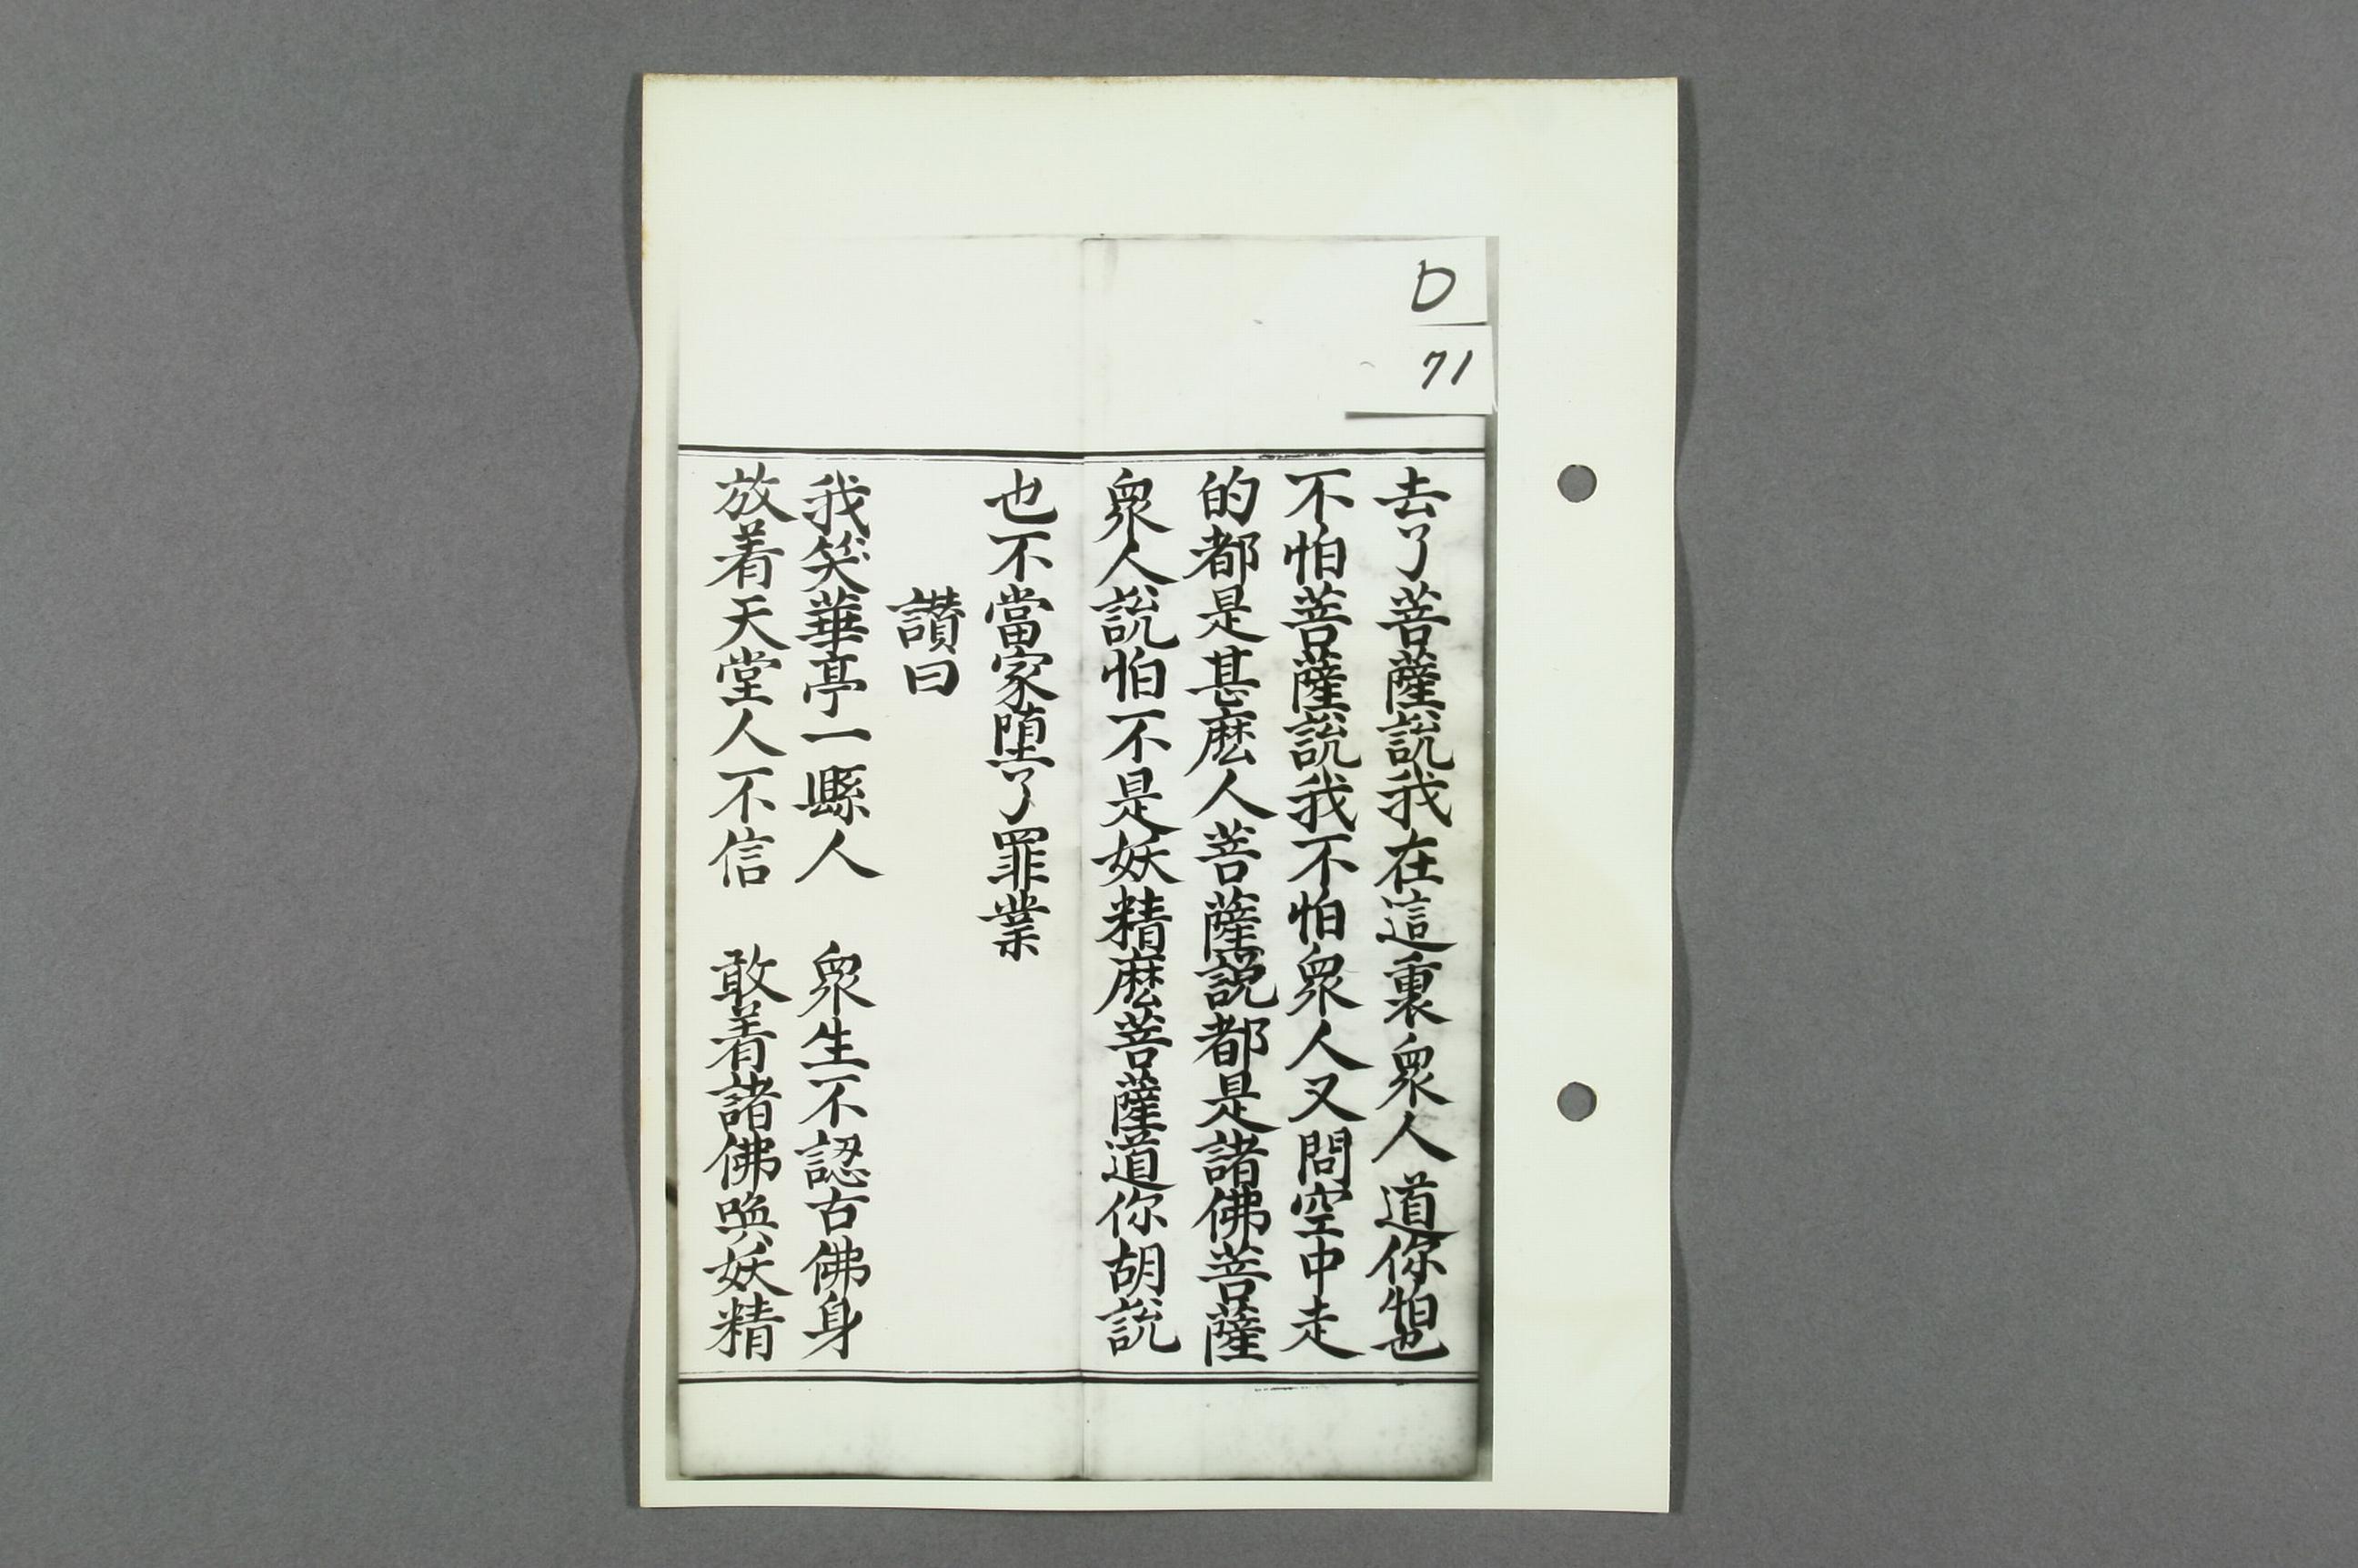 D
71
去了菩薩説我在這裏衆人道你怕也
不怕菩薩説我不怕衆人又問空中走
的都是甚麽人菩薩説都是諸佛菩薩
衆人説怕不是妖精麽菩薩道你胡説
也不當家堕了罪業
讃曰
我笑華亭一縣人 衆生不認古佛身
放着天堂人不信 敢着諸佛喚妖精